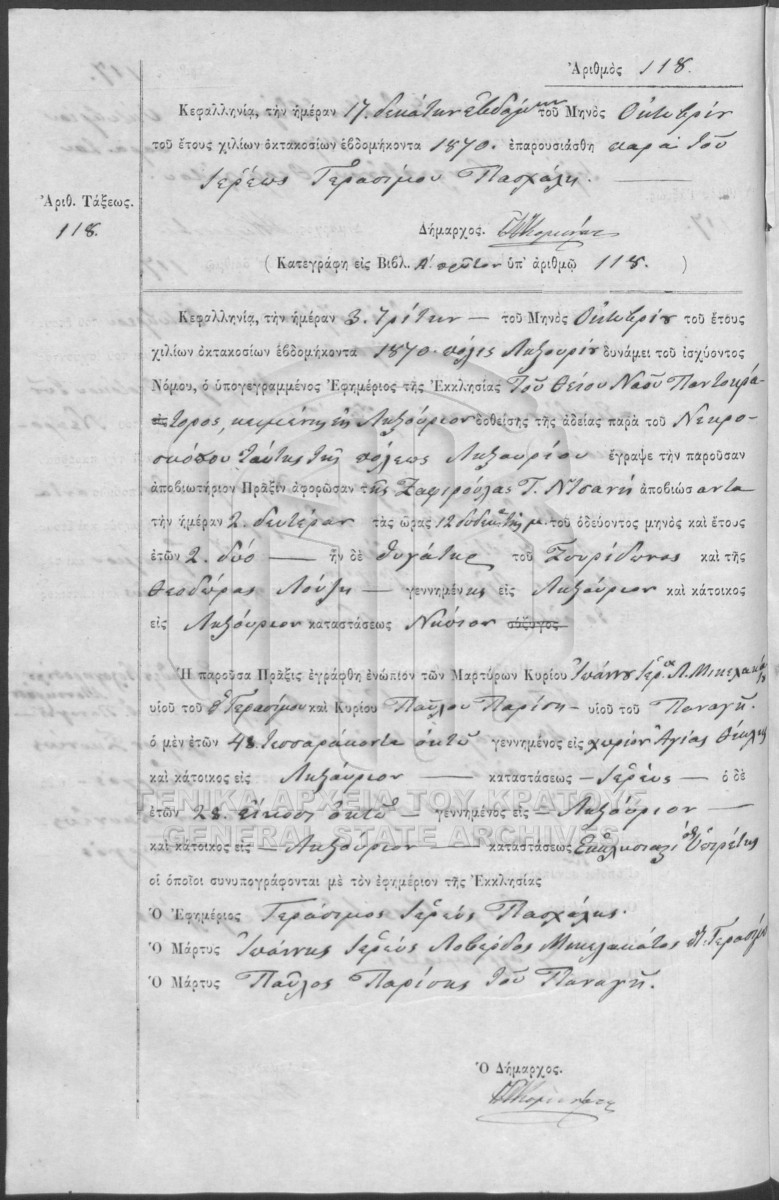 Ἀριθμὸς 118.
Κεφαλληνία, τὴν ἡμέραν 17. δεκάτην ἑβδόμην τοῦ Μηνὸς Ὀκτωβρίου
τοῦ ἔτους χιλίων ὀκτακοσίων ἑβδομήκοντα 1870. ἐπαρουσιάσθη παρὰ τοῦ
Ἱερέως Γερασίμου Πασχάλη.
Ἀριθ. Τάξεως.
118.
Δήμαρχος.
( Κατεγράφη εἰς Βιβλ. Α. πρῶτον ὑπ' ἀριθμῷ 118. )
Κεφαλληνία, τὴν ἡμέραν 3. τρίτην — τοῦ Μηνὸς Ὀκτωβρίου τοῦ ἔτους
χιλίων ὀκτακοσίων ἑβδομήκοντα 1870. πόλις Ληξουρίου δυνάμει τοῦ ἰσχύοντος
Νόμου, ὁ ὑπογεγραμμένος Ἐφημέριος τῆς Ἐκκλησίας τοῦ Θείου Ναοῦ Παντοκρά-
τορος, κειμένης ἐν Ληξούριον δοθείσης τῆς ἀδείας παρὰ τοῦ Νεκρο-
σκόπου ταύτης τῆς πόλεως Ληξουρίου ἔγραψε τὴν παροῦσαν
ἀποβιωτήριον Πρᾶξιν ἀφορῶσαν τῆς Ζαφιρούλας Γ. Ντσανῆ ἀποβιώσαντα
τὴν ἡμέραν 2. δευτέραν τὰς ὥρας 12 δώδεκα τῆς μ. τοῦ ὁδεύοντος μηνὸς καὶ ἔτους
ἐτῶν 2. δύο — ἦν δὲ θυγάτηρ τοῦ Σπυρίδωνος καὶ τῆς
Θεοδώρας Λούζη — γεννημένης εἰς Ληξούριον καὶ κάτοικος
εἰς Ληξούριον καταστάσεως Νήπιον σύζυγος
Ἡ παροῦσα Πρᾶξις ἐγράφθη ἐνώπιον τῶν Μαρτύρων Κυρίου Ἰωάννου Ἱερ. Λ. Μικελακάτο
υἱοῦ τοῦ Γερασίμου καὶ Κυρίου Παύλου Παρίση — υἱοῦ τοῦ Παναγῆ.
ὁ μὲν ἐτῶν 48 τεσσαράκοντα ὀκτώ γεννημένος εἰς χωρίον Ἁγίας Θέκλης
καὶ κάτοικος εἰς Ληξούριον — καταστάσεως — Ἱερεύς — ὁ δὲ
ΓΕΝΙΚΑ ΑΡΧΕΙΑ ΤΟΥ ΚΡΑΤΟΥΣ
ἐτῶν 28. εἴκοσι ὀκτώ — γεννημένος εἰς — Ληξούριον —
GENERAL STATE ARCHIVES
καὶ κάτοικος εἰς — Ληξούριον — καταστάσεως Ἐκκλησιαστικός Ὑπηρέτης
οἱ ὁποῖοι συνυπογράφονται μὲ τὸν ἐφημέριον τῆς Ἐκκλησίας
Ὁ Ἐφημέριος Γεράσιμος Ἱερεύς Πασχάλης.
Ὁ Μάρτυς Ἰωάννης Ἱερεύς Λοβέρδος Μικελακάτος Γερασίμου
Ὁ Μάρτυς Παῦλος Παρίσης τοῦ Παναγῆ.
Ὁ Δήμαρχος.